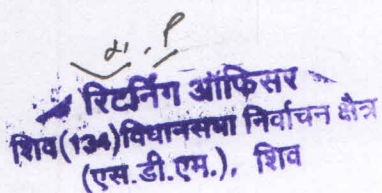 रिटर्निंग ऑफिसर
शिव(134)विधानसभा निर्वाचन क्षैत्र
(एस.डी.एम.), शिव